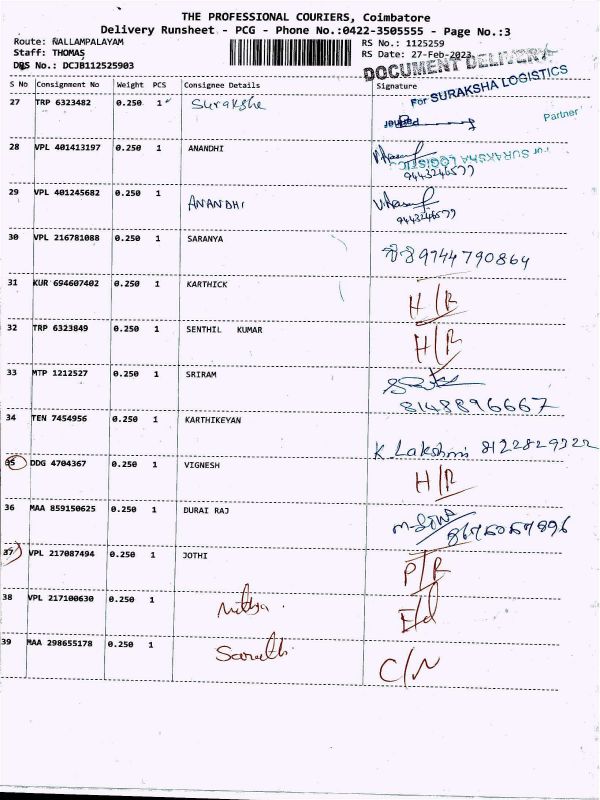 THE PROFESSIONAL COURIERS, Coimbatore
Delivery Runsheet - PCG - Phone No.:0422-3505555 - Page No.:3
Route: NALLAMPALAYAM
RS No.: 1125259
Staff: THOMAS
RS Date: 27-Feb-2023
DRS No.: DCJB112525903
DOCUMENT DELIVERY
S No Consignment No Weight PCS Consignee Details Signature
For SURAKSHA LOGISTICS
27 TRP 6323482 0.250 1 Suraksha
Partner
28 VPL 401413197 0.250 1 ANANDHI
For SURAKSHA LOGISTICS
9443246577
29 VPL 401245682 0.250 1 ANANDHI
9443246577
30 VPL 216781088 0.250 1 SARANYA 8974790864
31 KUR 694607402 0.250 1 KARTHICK H/R
32 TRP 6323849 0.250 1 SENTHIL KUMAR H/R
33 MTP 1212527 0.250 1 SRIRAM
8148896667
34 TEN 7454956 0.250 1 KARTHIKEYAN K. Lakshmi 8122829222
35 DDG 4704367 0.250 1 VIGNESH H/R
36 MAA 859150625 0.250 1 DURAI RAJ
37 VPL 217087494 0.250 1 JOTHI P/R
38 VPL 217100630 0.250 1 Nithya.
39 MAA 298655178 0.250 1 Sarathi C/N